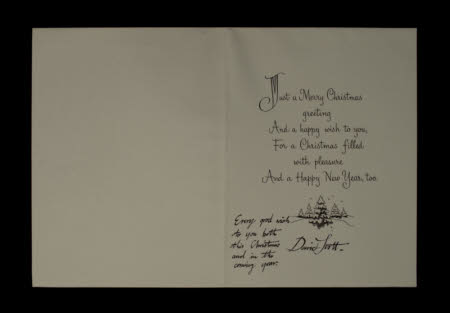 Just a Merry Christmas
greeting
And a happy wish to you,
For a Christmas filled
with pleasure
And a Happy New Year, too
Every good wish
to you both
this Christmas
and in the
coming year.
David Scott.